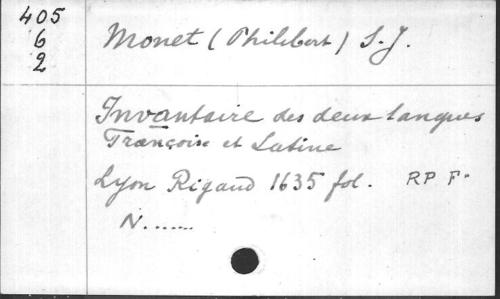 405
6
2
Monet (Philibert) S.J.
Invantaire des deux langues
Françoise et Latine
Lyon Rigaud 1635 fol. RP F.
N.......